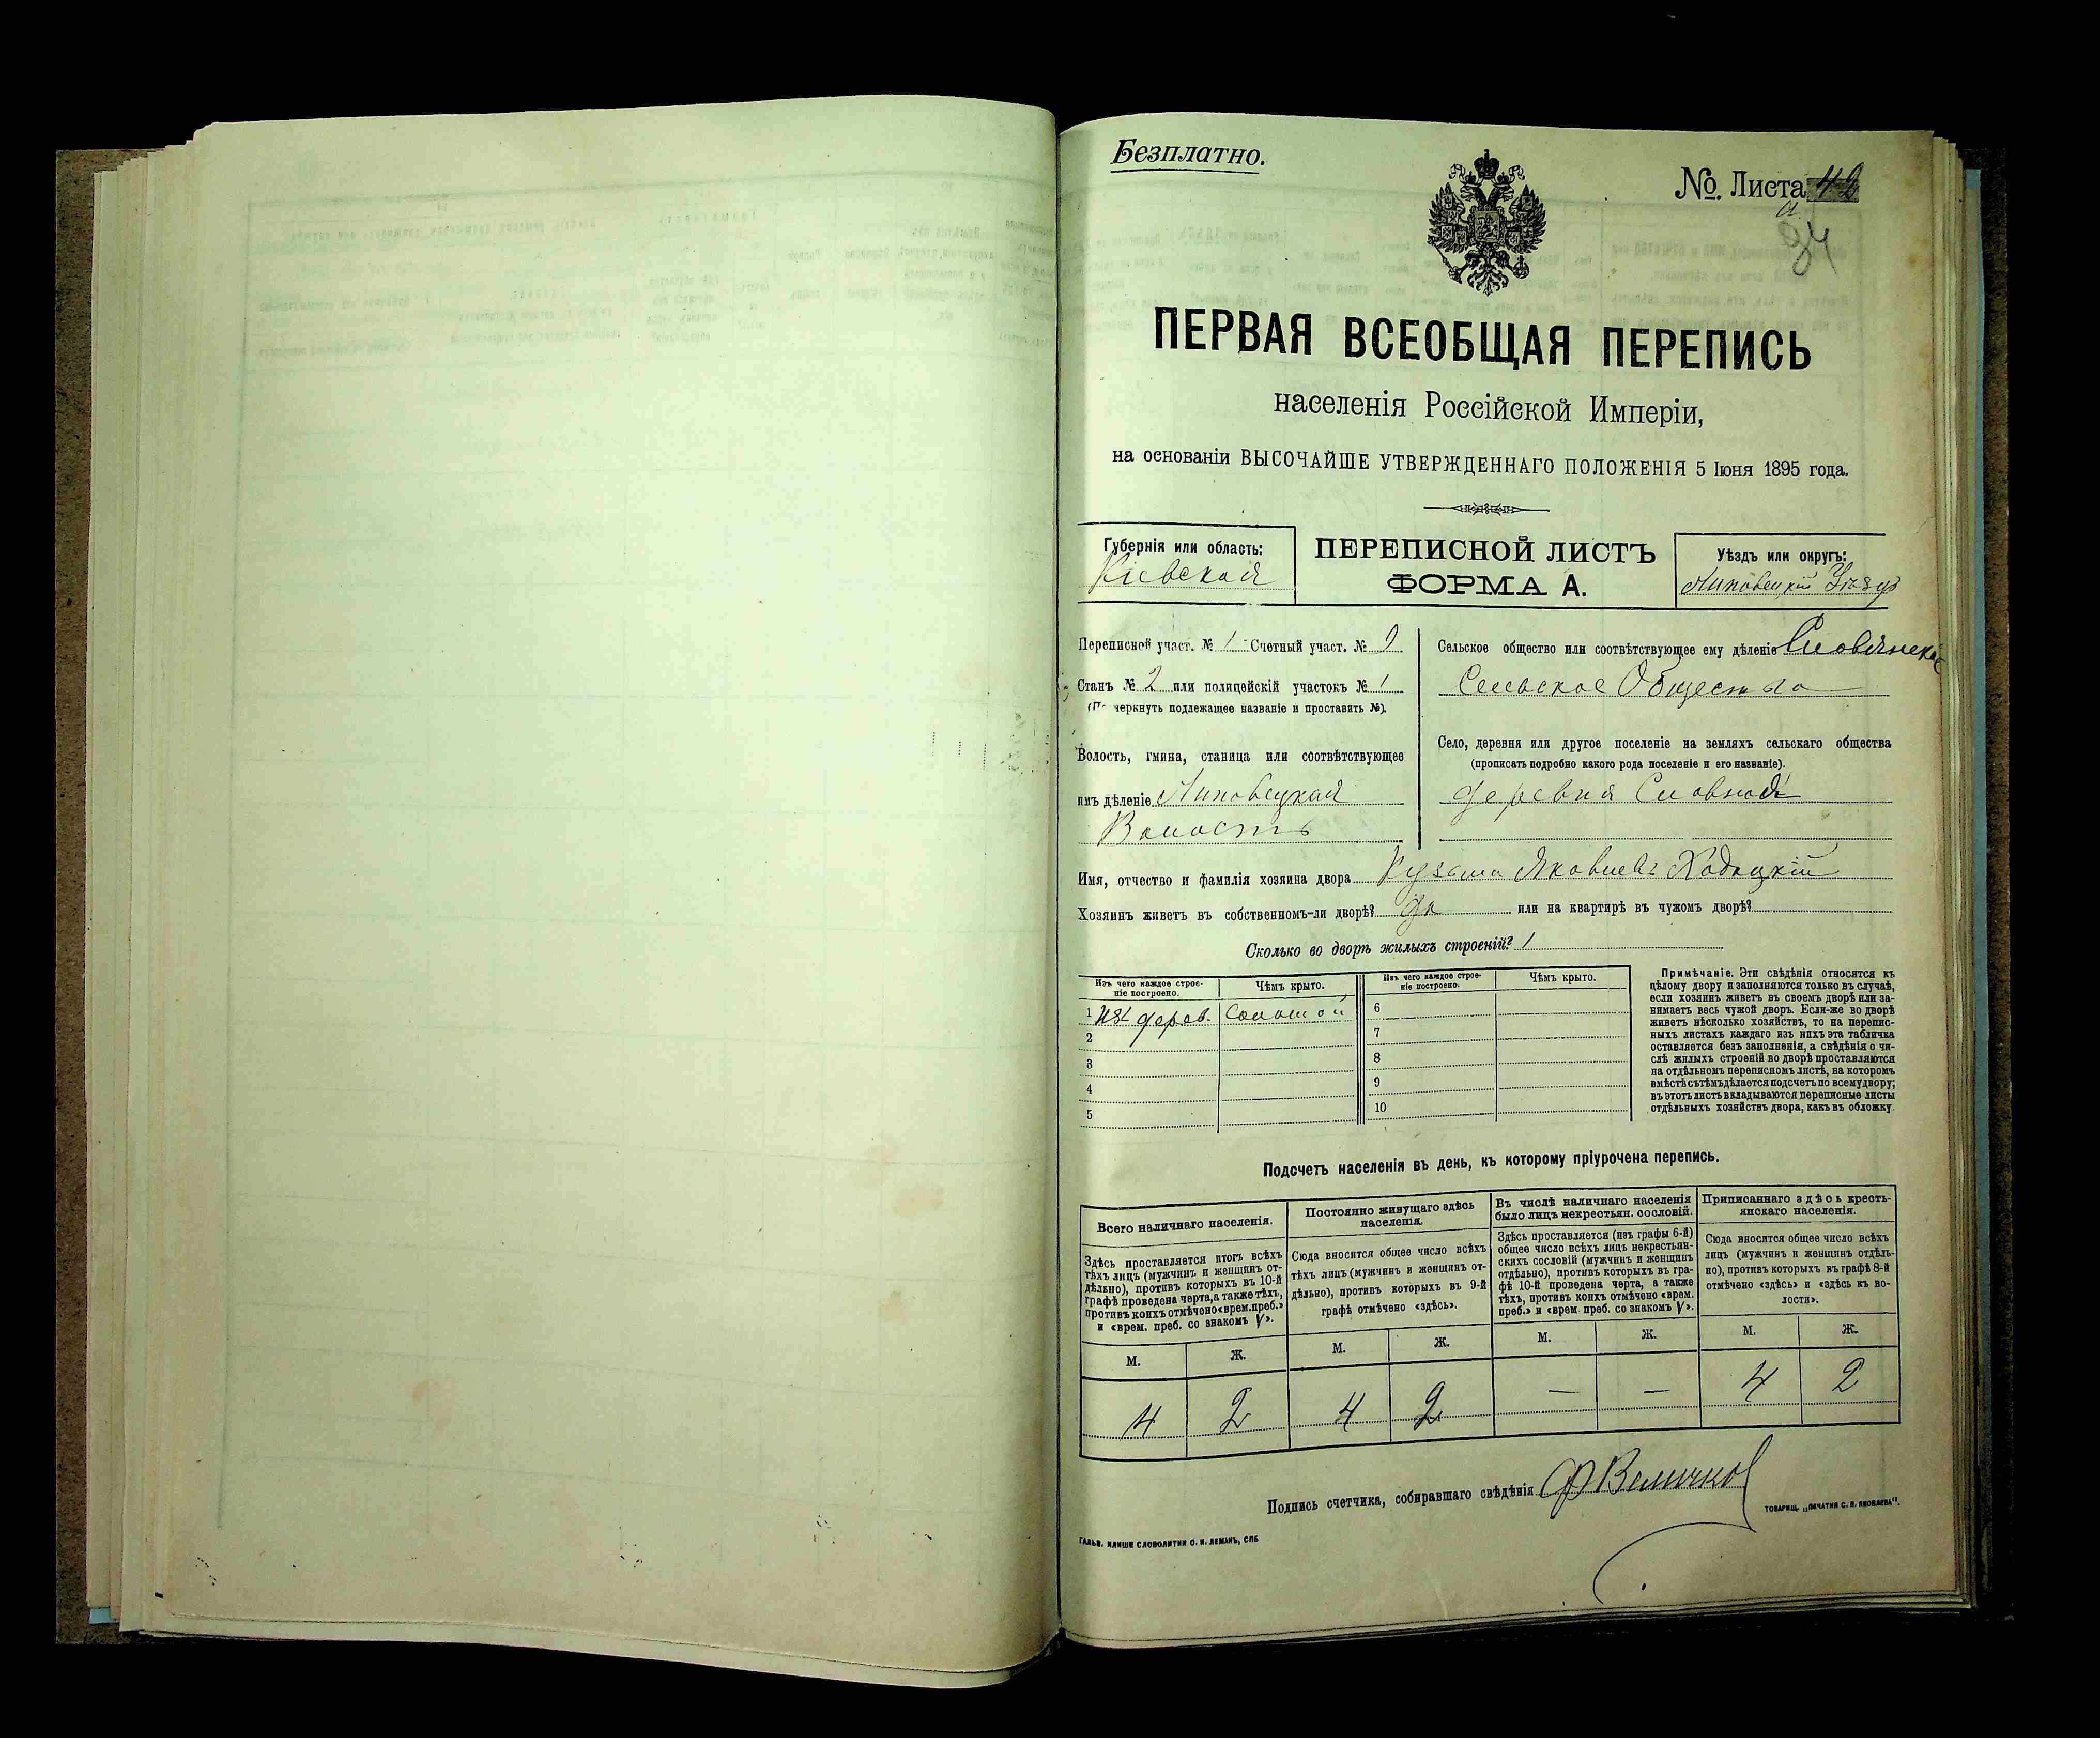 Безплатно.
№. Листа 42
а.
94
ПЕРВАЯ ВСЕОБЩАЯ ПЕРЕПИСЬ
населенія Россійской Имперіи,
на основаніи ВЫСОЧАЙШЕ УТВЕРЖДЕННАГО ПОЛОЖЕНІЯ 5 Іюня 1895 года.
Губернія или область:
Кіевская
ПЕРЕПИСНОЙ ЛИСТЪ
ФОРМА А.
Уѣздъ или округъ:
Липовецкій Уѣздъ
Переписной участ. № 1 Счетный участ. № 9
Станъ № 2 или полицейскій участокъ № 1
черкнуть подлежащее названіе и проставить №).
Волость, гмина, станица или соотвѣтствующее
имъ дѣленіе Липовецкая
Волость
Сельское общество или соотвѣтствующее ему дѣленіе
Сельское Общество
Село, деревня или другое поселеніе на земляхъ сельскаго общества
(прописать подробно какого рода поселеніе и его названіе).
деревня Словной
Имя, отчество и фамилія хозяина двора Кузьма Яковлевъ Ходацкій
Хозяинъ живетъ въ собственномъ-ли дворѣ? да или на квартирѣ въ чужомъ дворѣ?
Сколько во дворѣ жилыхъ строеній? 1
Изъ чего каждое строе-
ніе построено.
Чѣмъ крыто.
1 изъ дерев. Соломой
2
3
4
5
Изъ чего каждое строе-
ніе построено.
Чѣмъ крыто.
6
7
8
9
10
Примѣчаніе. Эти свѣдѣнія относятся къ
цѣлому двору и заполняются только въ случаѣ,
если хозяинъ живетъ въ своемъ дворѣ или за-
нимаетъ весь чужой дворъ. Если-же во дворѣ
живетъ нѣсколько хозяйствъ, то на перепис-
ныхъ листахъ каждаго изъ нихъ эта табличка
оставляется безъ заполненія, а свѣдѣнія о чи-
слѣ жилыхъ строеній во дворѣ проставляются
на отдѣльномъ переписномъ листѣ, на которомъ
вмѣстѣ съ тѣмъ дѣлается подсчетъ по всему двору;
въ этотъ листъ вкладываются переписные листы
отдѣльныхъ хозяйствъ двора, какъ въ обложку.
Подсчетъ населенія въ день, къ которому пріурочена перепись.
Всего наличнаго населенія.
Здѣсь проставляется итогъ всѣхъ
тѣхъ лицъ (мужчинъ и женщинъ от-
дѣльно), противъ которыхъ въ 10-й
графѣ проведена черта, а также тѣхъ,
противъ коихъ отмѣчено «врем. преб.»
и «врем. преб. со знакомъ V».
М. Ж.
4 2
Постоянно живущаго здѣсь
населенія.
Сюда вносится общее число всѣхъ
тѣхъ лицъ (мужчинъ и женщинъ от-
дѣльно), противъ которыхъ въ 9-й
графѣ отмѣчено «здѣсь».
М. Ж.
4 2
Въ числѣ наличнаго населенія
было лицъ некрестьян. сословій.
Здѣсь проставляется (изъ графы 6-й)
общее число всѣхъ лицъ некрестьян-
скихъ сословій (мужчинъ и женщинъ
отдѣльно), противъ которыхъ въ гра-
фѣ 10-й проведена черта, а также
тѣхъ, противъ коихъ отмѣчено «врем.
преб.» и «врем. преб. со знакомъ V».
М. Ж.
— —
Приписаннаго здѣсь кресть-
янскаго населенія.
Сюда вносится общее число всѣхъ
лицъ (мужчинъ и женщинъ отдѣль-
но), противъ которыхъ въ графѣ 8-й
отмѣчено «здѣсь» и «здѣсь къ во-
лости».
М. Ж.
4 2
Подпись счетчика, собиравшаго свѣдѣнія Ф Величко
ТОВАРИЩ. „ПЕЧАТНЯ С. П. ЯКОВЛЕВА".
ГАЛЬВ. КЛИШЕ СЛОВОЛИТНИ О. И. ЛЕМАНЪ, СПБ